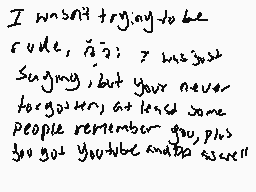 I wasn't trying to be
rude, ñ_ñ; I was just
saying, but your never
forgotten, at least some
people remember you, plus
you got youtube and as well